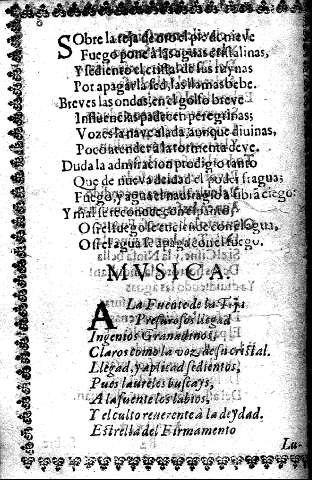 Sobre la teja de oro el pie de nieve
Fuego pone a las aguas cristalinas,
Y sediento el cristal de sus ruynas
Por apagar la sed, las llamas bebe.
Breves las ondas, en el golfo breve
Influencias padecen peregrinas;
Vozes la nave alada, aunque diuinas,
Poco atender a la tormenta deve.
Duda la admiracion prodigio tanto
Que de nueva deidad el poder fragua;
Fuego, y agua el naufragio
Y mal se reconoce con espanto,
O si el fuego se enciende con el agua,
O si el agua se apaga con el fuego.
MVSICA.
A La Fuente de la
Presurosos llegad
Ingenios Granadinos,
Claros como la voz de su cristal.
Llegad, y aplicad sedientos,
Pues laureles buscays,
A la fuente los labios,
Y el culto reuerente à la deydad.
Estrella del Firmamento
La-